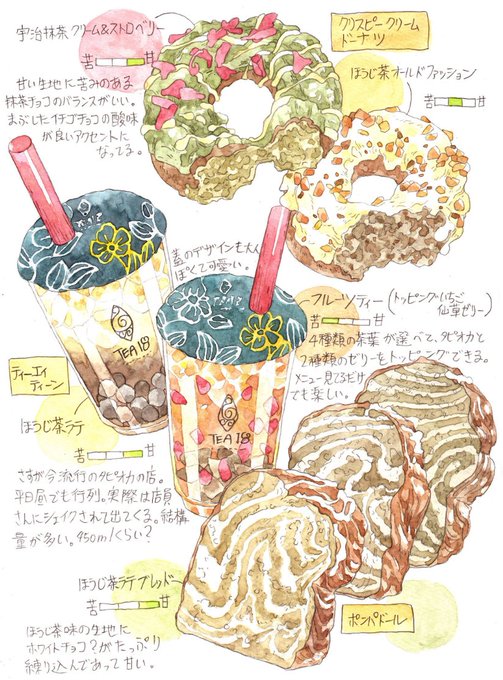 宇治抹茶クリーム&ストロベリー
苦 甘
甘い生地に苦みのある
抹茶チョコのバランスがいい。
まぶしたイチゴチョコの酸味
が良いアクセントに
なってる。
クリスピークリーム
ドーナツ
ほうじ茶オールドファッション
苦 甘
蓋のデザインも大人
ぽくて可愛い。
TEA18
TEA18
ティーエイ
ティーン
ほうじ茶ラテ
苦 甘
さすが今流行のタピオカの店。
平日昼でも行列。実際は店員
さんにシェイクされて出てくる。結構
量が多い。450mlくらい?
フルーツティー(トッピングいちご
仙草ゼリー)
苦 甘
4種類の茶葉が選べて、タピオカと
7種類のゼリーをトッピングできる。
メニュー見てるだけ
でも楽しい。
ほうじ茶ラテブレッド
苦 甘
ほうじ茶味の生地に
ホワイトチョコ?がたっぷり
練り込んであって甘い。
ポンパドール